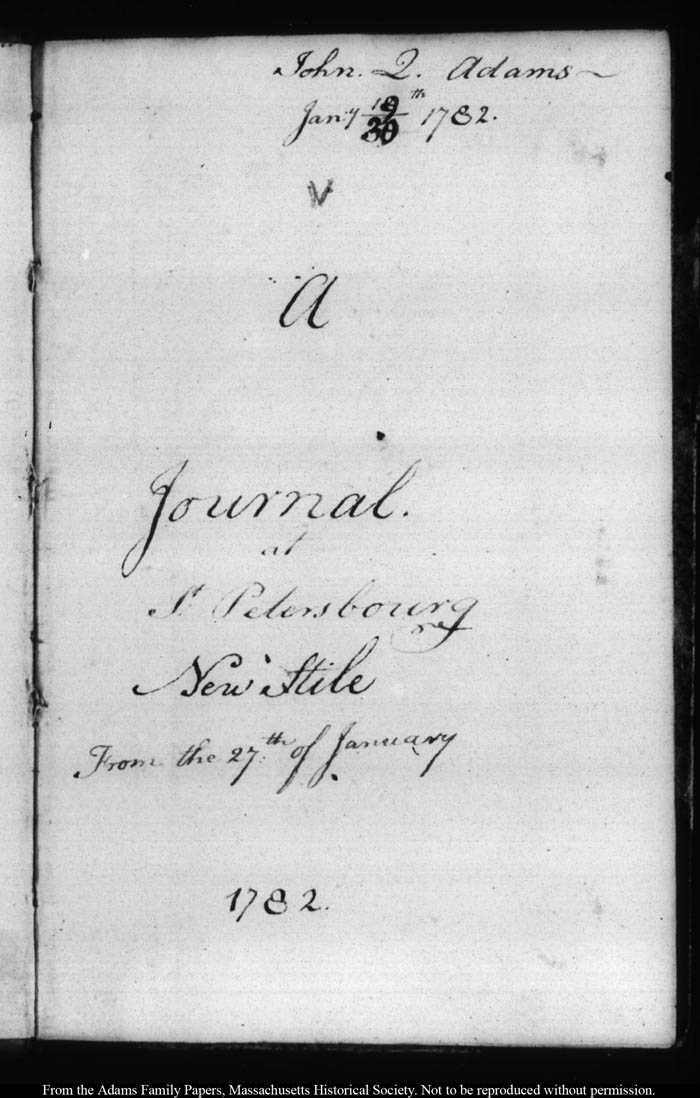 John. Q. Adams
Jany 19/30th 1782.
V
A
Journal.
at
St Petersbourg
New Stile
From the 27th of January
1782.
From the Adams Family Papers, Massachusetts Historical Society. Not to be reproduced without permission.